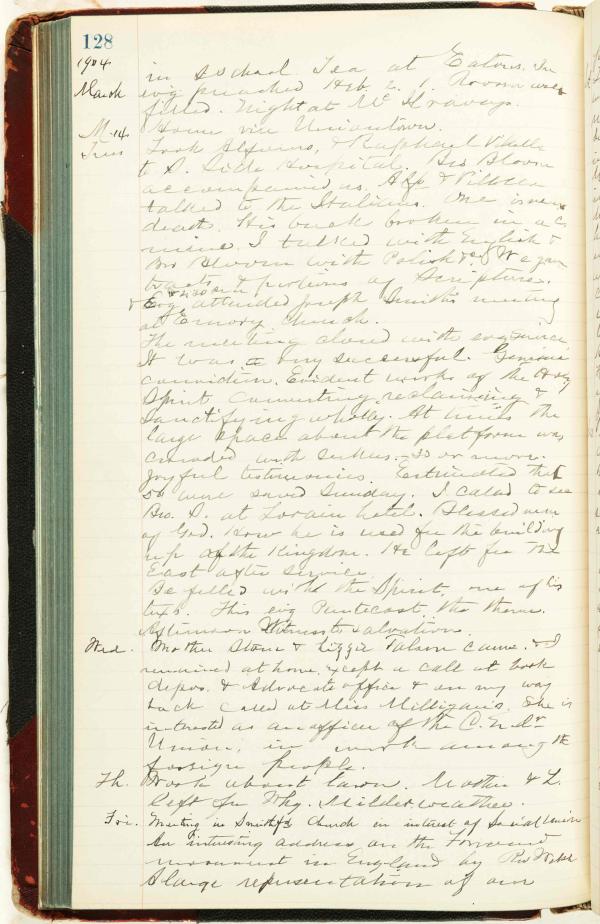 128
1904
March
in school Tea at Eatons. In
evg preached Heb. 2. 1. Room was
filled. Night at Mc
M. 14 Home via Uniontown.
Tues Took & Raphael
to S. Side Hospital, Bro Bloom
accompanied us. &
talked to the Italians. One is near
death. His back broken in a c.
mine. I talked with English &
Bro Bloom with Polish &
tracts & portions of Scripture.
Evg attended Joseph Smith's meeting
at Emory Church.
The meeting closed with evg service
It was a very successful. Genuine
conviction. Evident works of the Holy
Spirit converting, reclaiming &
sanctifying wholly. At times the
large space about the platform was
crowded with seekers. 50 or more.
Joyful testimonies. Estimated that
50 were saved Sunday. I called to see
Bro. S. at Lorain hotel. Blessed man
of God. How he is used for the building
up of the Kingdom. He left for the
East after service.
Be filled with the Spirit, one of his
texts. This evg Pentecost the theme.
Afternoon Witness to salvation.
Wed. Mother Stone & Lizzie came. & I
remained at home, except a call at book
depos. & Advocate office & on my way
back called at Miss Milligan's. She is
interested as an officer of the C. E.
Union, in work among the
foreign people.
Th. Work about lawn. Mother & L.
left for Whg. Milder weather.
Fri. Meeting in Smithf'd Church in interest of Social Union
An interesting address on the Forward
movement in England by Rev
A large representation of our